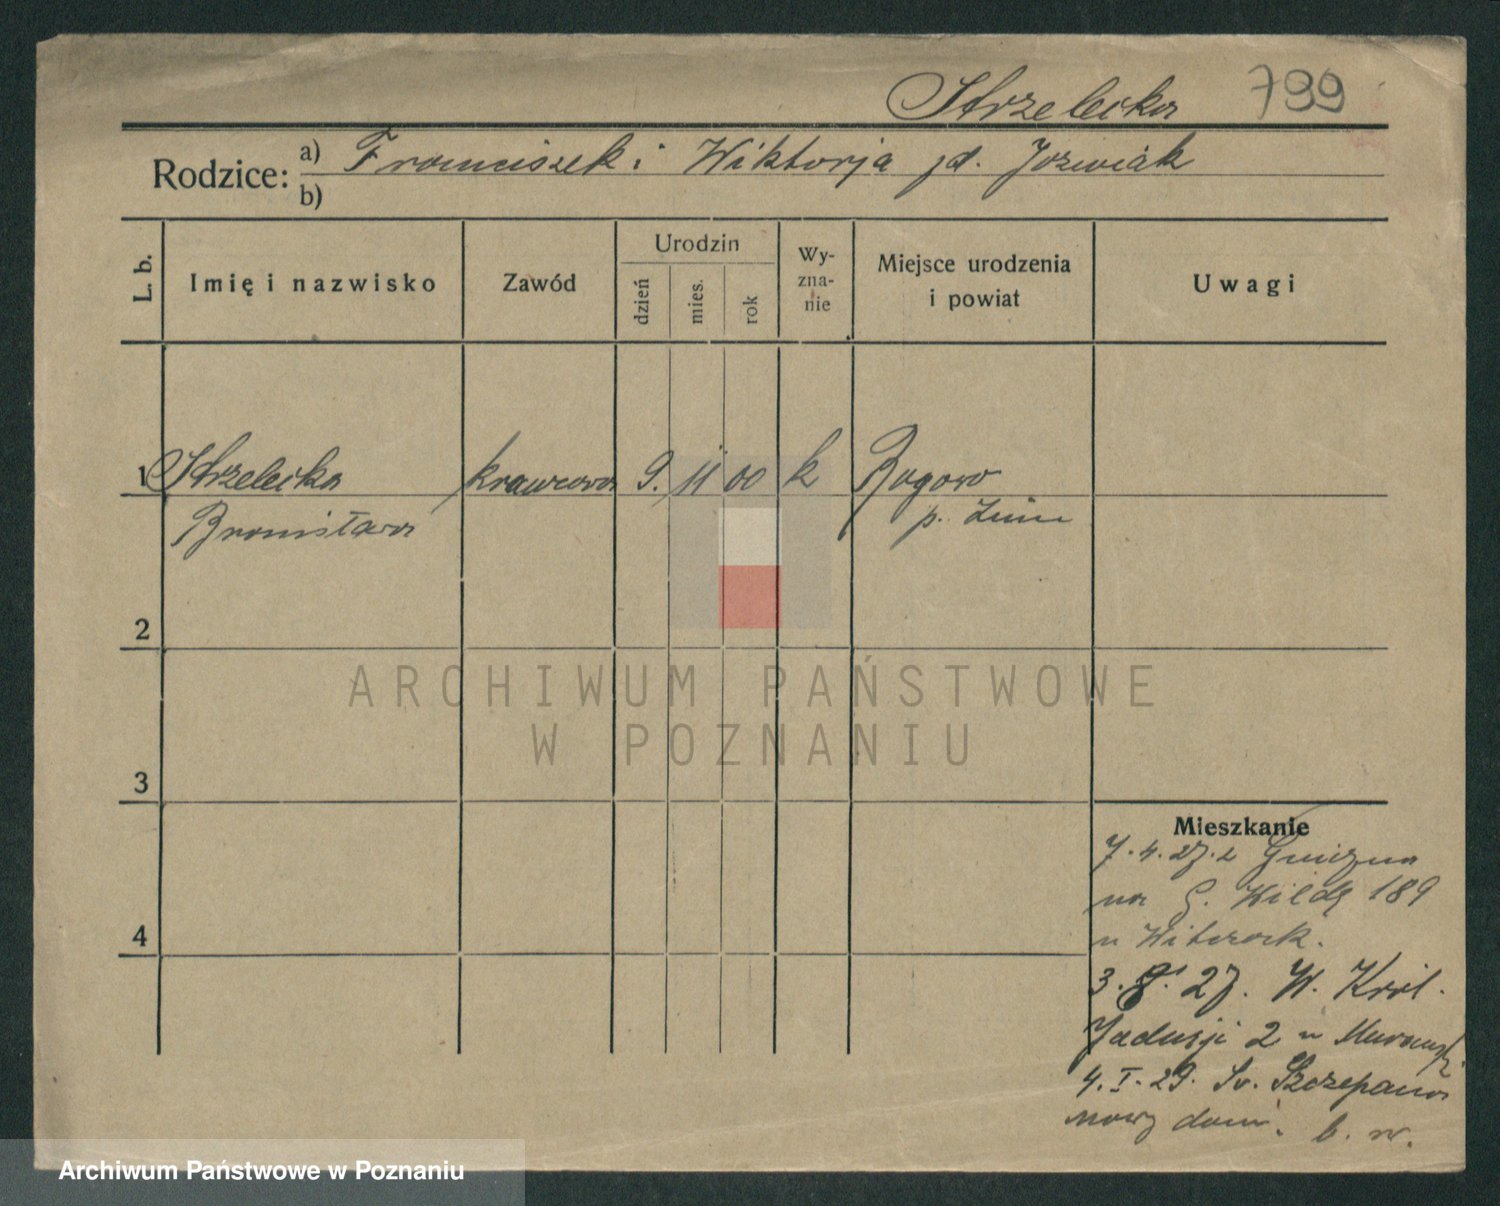 Strzelecka 799
Rodzice: a) Franciszek i Wiktorja zd. Jozwiak
b)
L. b. Imię i nazwisko Zawód Urodzin dzień mies. rok Wy-zna-nie Miejsce urodzenia i powiat Uwagi
1 Strzelecka krawcowa 9. 11 00 k Rogowo
Bronisława p. Żnin
2
3
4
Mieszkanie
7.4.27. z Gniezna
na G. Wildę 189
u Witczack.
3.8.27. W. Król.
Jadwigi 2 u
4.I.29. Św. Szczepana
nowy dom. b. n.
ARCHIWUM PAŃSTWOWE
W POZNANIU
Archiwum Państwowe w Poznaniu